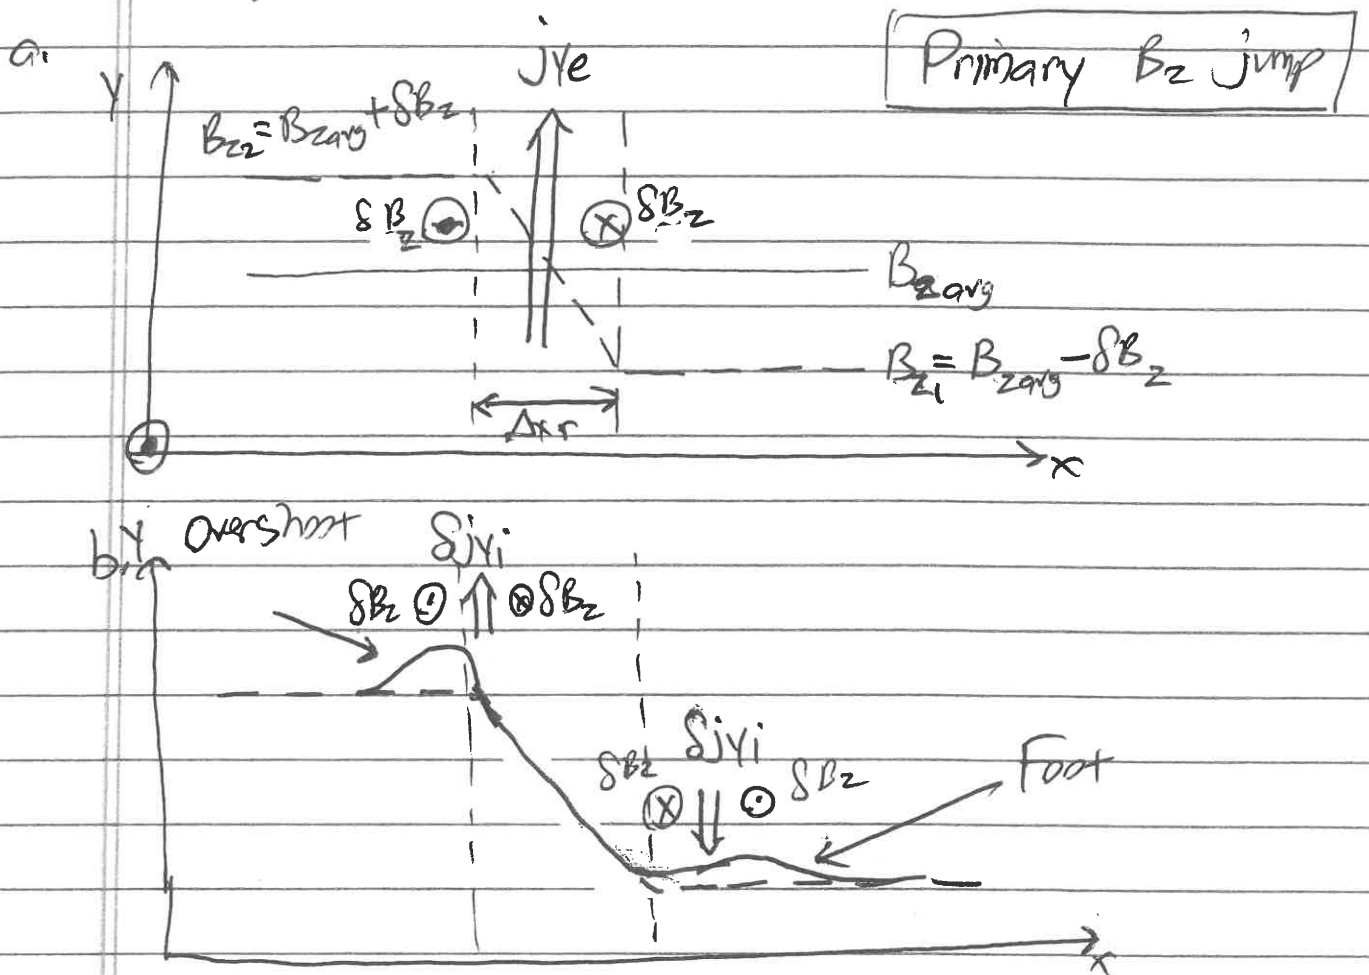 a.
Primary Bz jump
jYe
Y
Bz2 = Bzavg + δBz
δBz
δBz
Bzavg
Bz1 = Bzavg - δBz
Δxr
x
b.
Y
Overshoot
δjYi
δBz
δBz
δjYi
δBz
δBz
Foot
x